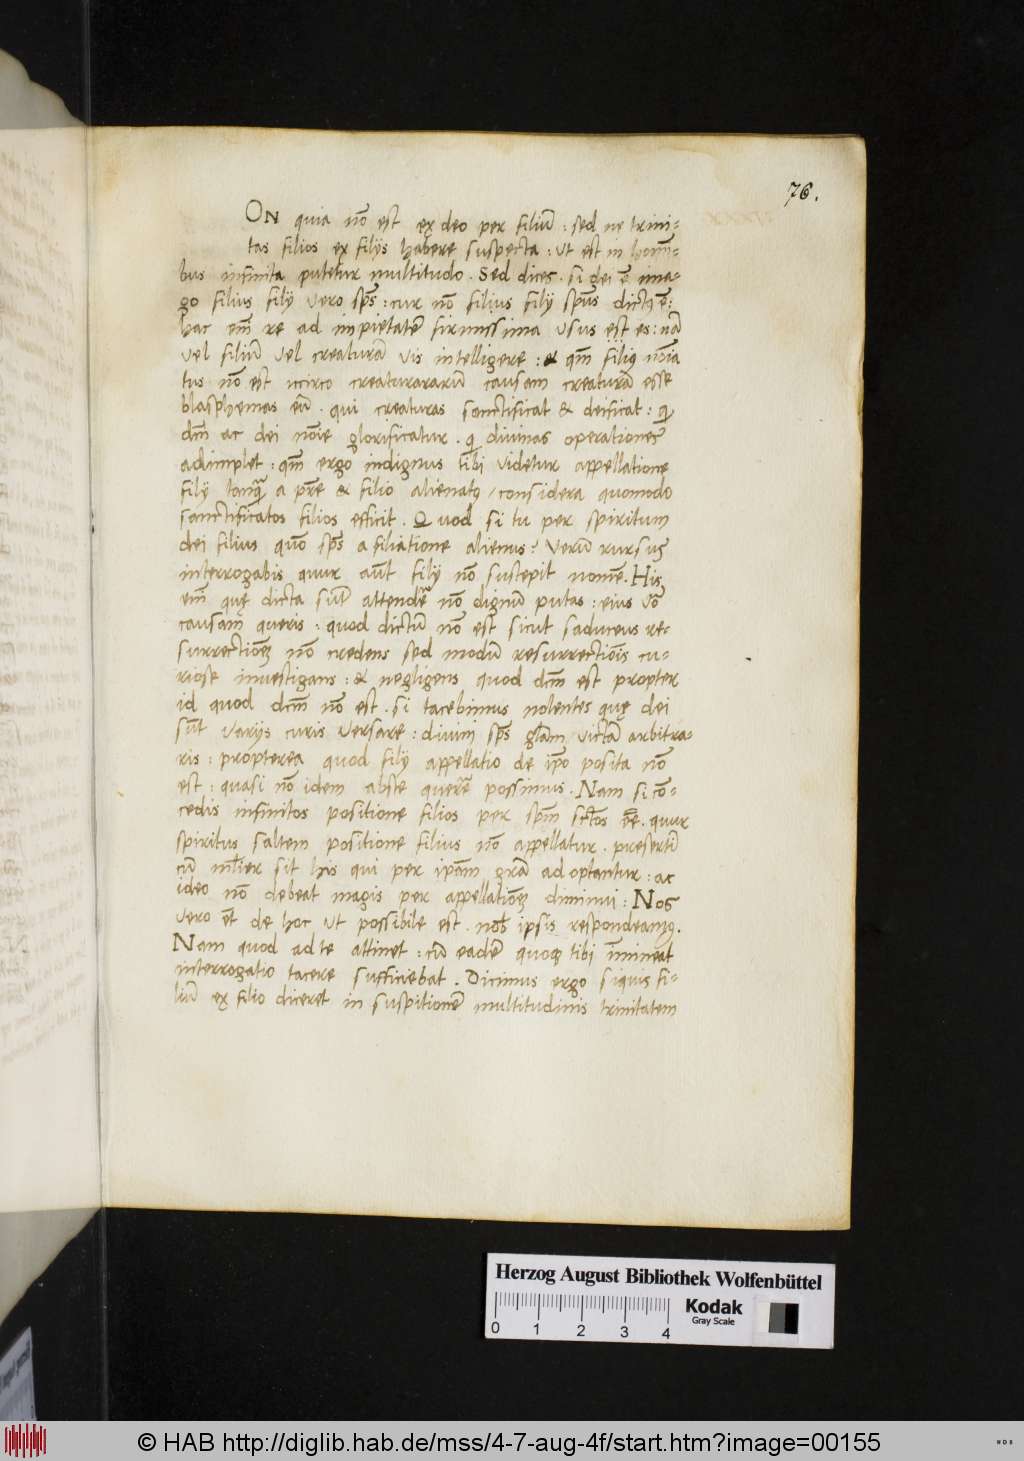 76.
ON quia nō est eẹ deo per filiū : sed ne trini-
tas filios ex filijs habere suspecta : ut est in homī-
bus infinita putetur multitudo . Sed dices . si dei ē ima-
go filius filij vero sp̄s : cur nō filius filij sp̄us dictꝰ ē :
hac em̄ re ad impietatē firmissima usus est es : nā
vel filiū vel creaturā vis intelligere : & qm̄ filiꝰ nōīa
tus nō est iccirco creaturararū causam creaturā esse
blasphemas eū . qui creaturas sanctificat & deificat : qͥ
dm̄ ac dei nōīe glorificatur . qͥ divinas operationes
adimplet : qm̄ ergo indignus tibi videtur appellatione
filij tanq̄ a pr̄e & filio alienatꝰ / considera quomodo
sanctificatos filios efficit . Quod si tu per spiritum
dei filius quō sp̄s a filiatione alienus ? Verū rursus
interrogabis quur aūt filij nō suscepit nomē . His
em̄ quę dicta sūt attendē̄ nō dignū putas : eius vō
causam queris : quod dictū nō est sicut saduceus re-
surrectionē nō credens sed modū resurrectiōis cu-
riose investigans : & negligens quod dcm̄ est propter
id quod dcm̄ nō est . si tacebimus nolentes quę dei
sūt varijs curis versare : divini sp̄s glām victā arbitra-
ris : propterea quod filij appellatio de ip̄o posita nō
est : quasi nō idem abste querē̄ possimus . Nam si cō-
cedis infinitos positione filios per sp̄m sc̄tos ēe . quur
spiritus saltem positione filius nō appellatur . presertī
cū mlier sit his qui per ipām grām adoptantur : ac
ideo nō debeat magis per appellationē diminui : Nos
vero et̄ de hoc ut possibile est . nob̄ ipsis respondeamꝰ .
Nam quod ad te attinet : cū eadē quoqꝫ tibi īmineat
interrogatio tacere sufficiebat . Dicimus ergo siquis fi-
liū eẹ filio diceret in suspitionē multitudinis trinitatem
Herzog August Bibliothek Wolfenbüttel
0 1 2 3 4
Kodak
Gray Scale
© HAB http://diglib.hab.de/mss/4-7-aug-4f/start.htm?image=00155